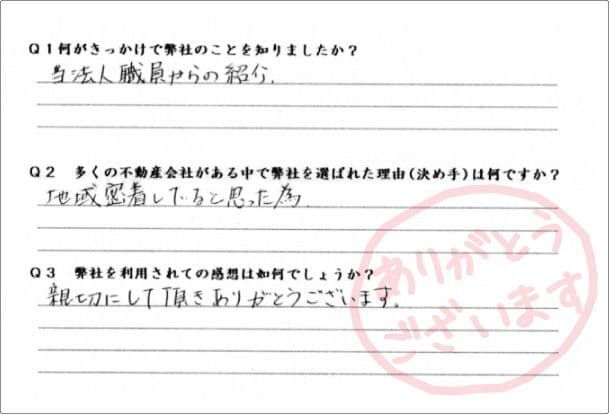 Q1何がきっかけで弊社のことを知りましたか？
当法人職員からの紹介.
Q2 多くの不動産会社がある中で弊社を選ばれた理由(決め手)は何ですか？
地域密着していると思った為.
Q3 弊社を利用されての感想は如何でしょうか？
親切にして頂きありがとうございます。
ありがとう
ございます